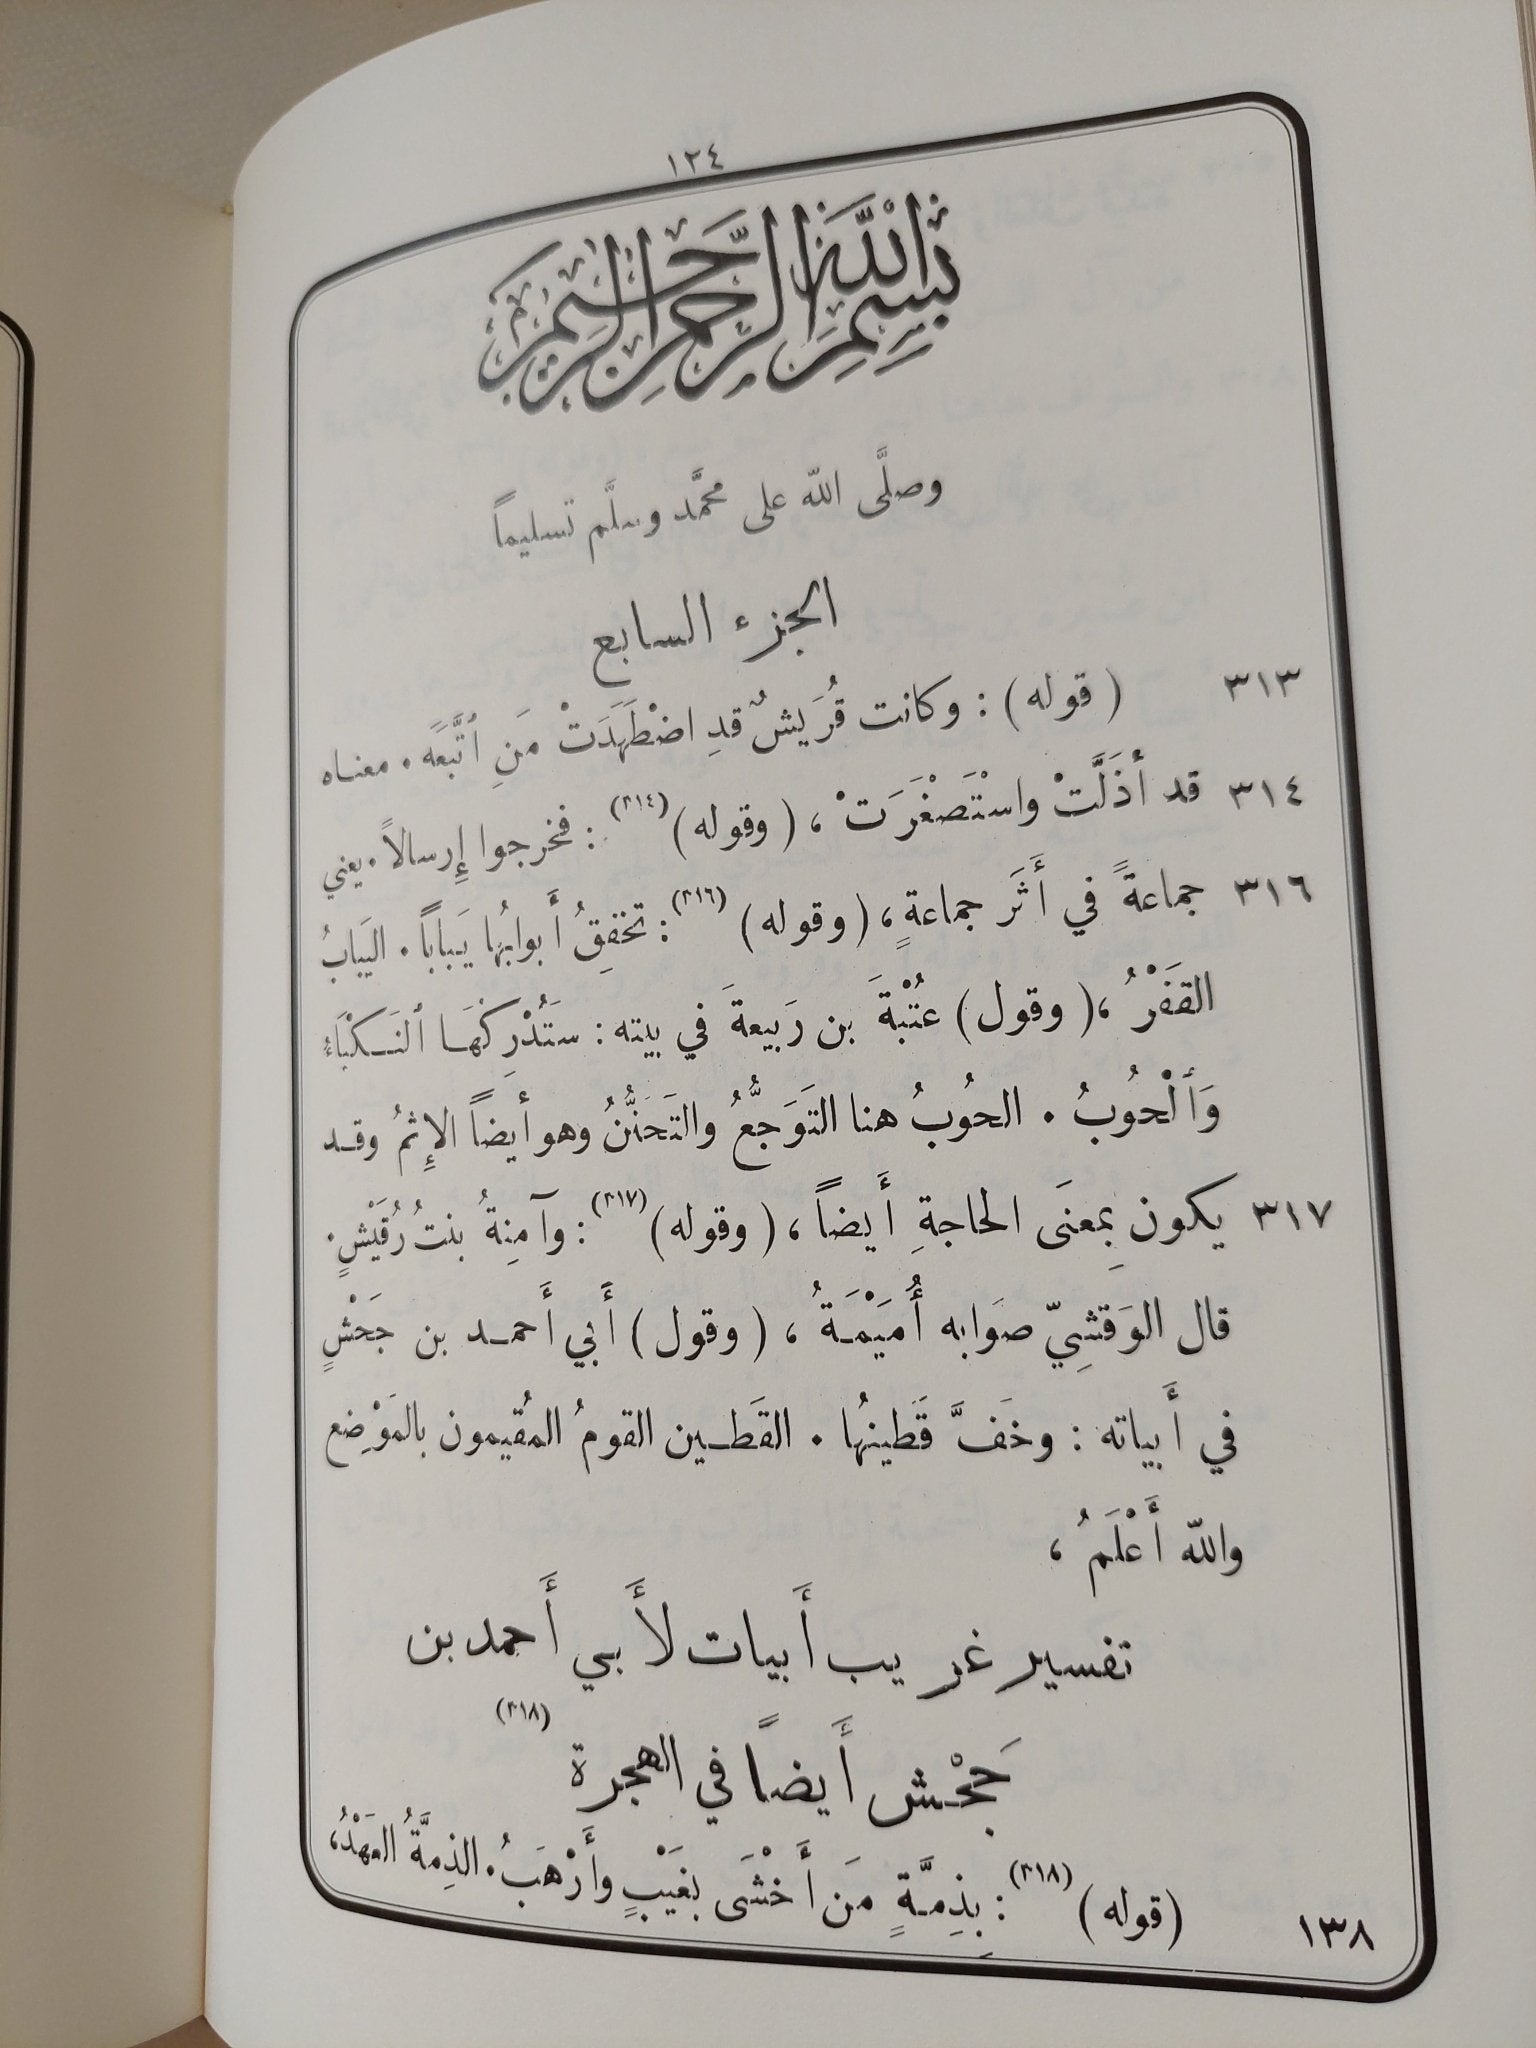 ١٢٤
بِسْمِ اللَّهِ الرَّحْمٰنِ الرَّحِيمِ
وصلَّى الله على محمَّد وسلَّم تسليماً
الجزء السابع
٣١٣ ( قوله ) : وكانت قُرَيشٌ قدِ اضْطَهَدَتْ مَنِ ٱتَّبَعَه . معناه
٣١٤ قد أذَلَّتْ واسْتَصْغَرَتْ ، ( وقوله )(٣١٤) : فخرجوا إِرسالاً . يعني
٣١٦ جماعةً في أَثَر جماعةٍ ، ( وقوله )(٣١٦) : تخفِقُ أَبوابُها يَبَاباً . اليَبابُ
القَفْرُ ، ( وقول ) عُتْبةَ بن رَبيعةَ في بيته : ستَدُرِكُهَا ٱلنَكْبَاءُ
وَٱلْحُوبُ . الحُوبُ هنا التَوَجُّعُ والتَحَنُّنُ وهو أيضاً الإِثمُ وقد
٣١٧ يكون بِمعنَى الحاجةِ أَيضاً ، ( وقوله )(٣١٧) : وآمِنةُ بنتُ رُقَيْشٍ .
قال الوَقَشِيّ صوَابه أُمَيْمَةُ ، ( وقول ) أَبي أَحمد بن جَحْشٍ
في أَبياته : وخَفَّ قَطينُها . القَطين القومُ المُقيمون بالمَوْضِع
والله أَعْلَمُ ،
تفسير غريب أَبيات لأَبي أَحمد بن
جَحْش أَيضاً في الهجرة (٣١٨)
(قوله)(٣١٨) : بِذِمَّةٍ مَن أَخْشَى بغَيْبٍ وأَرْهَبُ . الذِمَّةُ العَهْدُ،
١٣٨